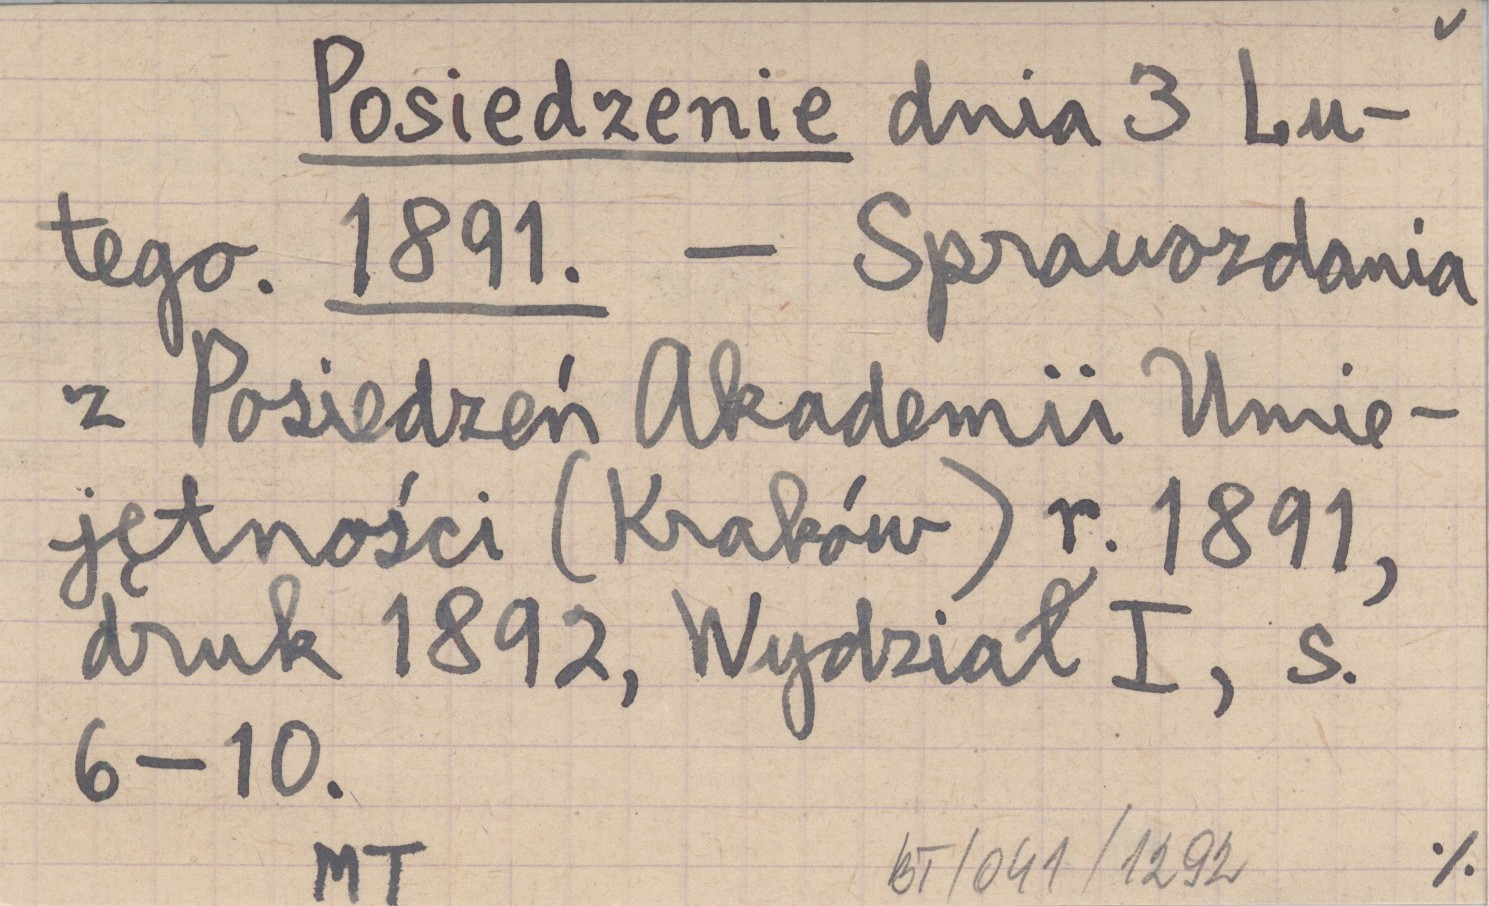 ✓
Posiedzenie dnia 3 Lu-
tego. 1891. — Sprawozdania
z Posiedzeń Akademii Umie-
jętności (Kraków) r. 1891,
druk 1892, Wydział I, s.
6-10.
MT BT/041/1292 ./.